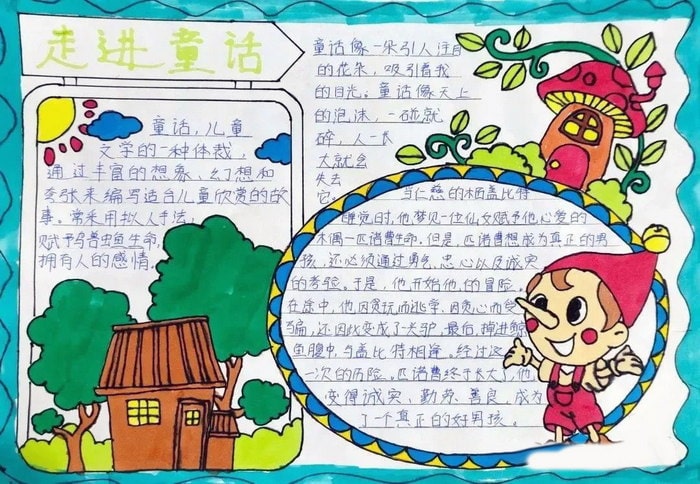 走进童话
童话,儿童
文学的一种体裁,
通过丰富的想象、幻想和
夸张来编写适合儿童欣赏的故
事。常采用拟人手法,
赋予鸟兽虫鱼生命,
拥有人的感情。
童话像一朵引人注目
的花朵,吸引着我
的目光。童话像天上
的泡沫,一碰就
碎,人一长
大就会
失去
它。
当仁慈的木匠盖比特
睡觉时,他梦见一位仙女赋予他心爱的
木偶—匹诺曹生命,但是,匹诺曹想成为真正的男
孩,还必须通过勇气,忠心以及诚实
的考验。于是,他开始他的冒险。
在途中,他因贪玩而逃学,因贪心而受
骗,还因此变成了头驴。最后,掉进鲸
鱼腹中,与盖比特相逢。经过这
一次的历险。匹诺曹终于长大了,他
变得诚实、勤劳、善良,成为
了个真正的好男孩。